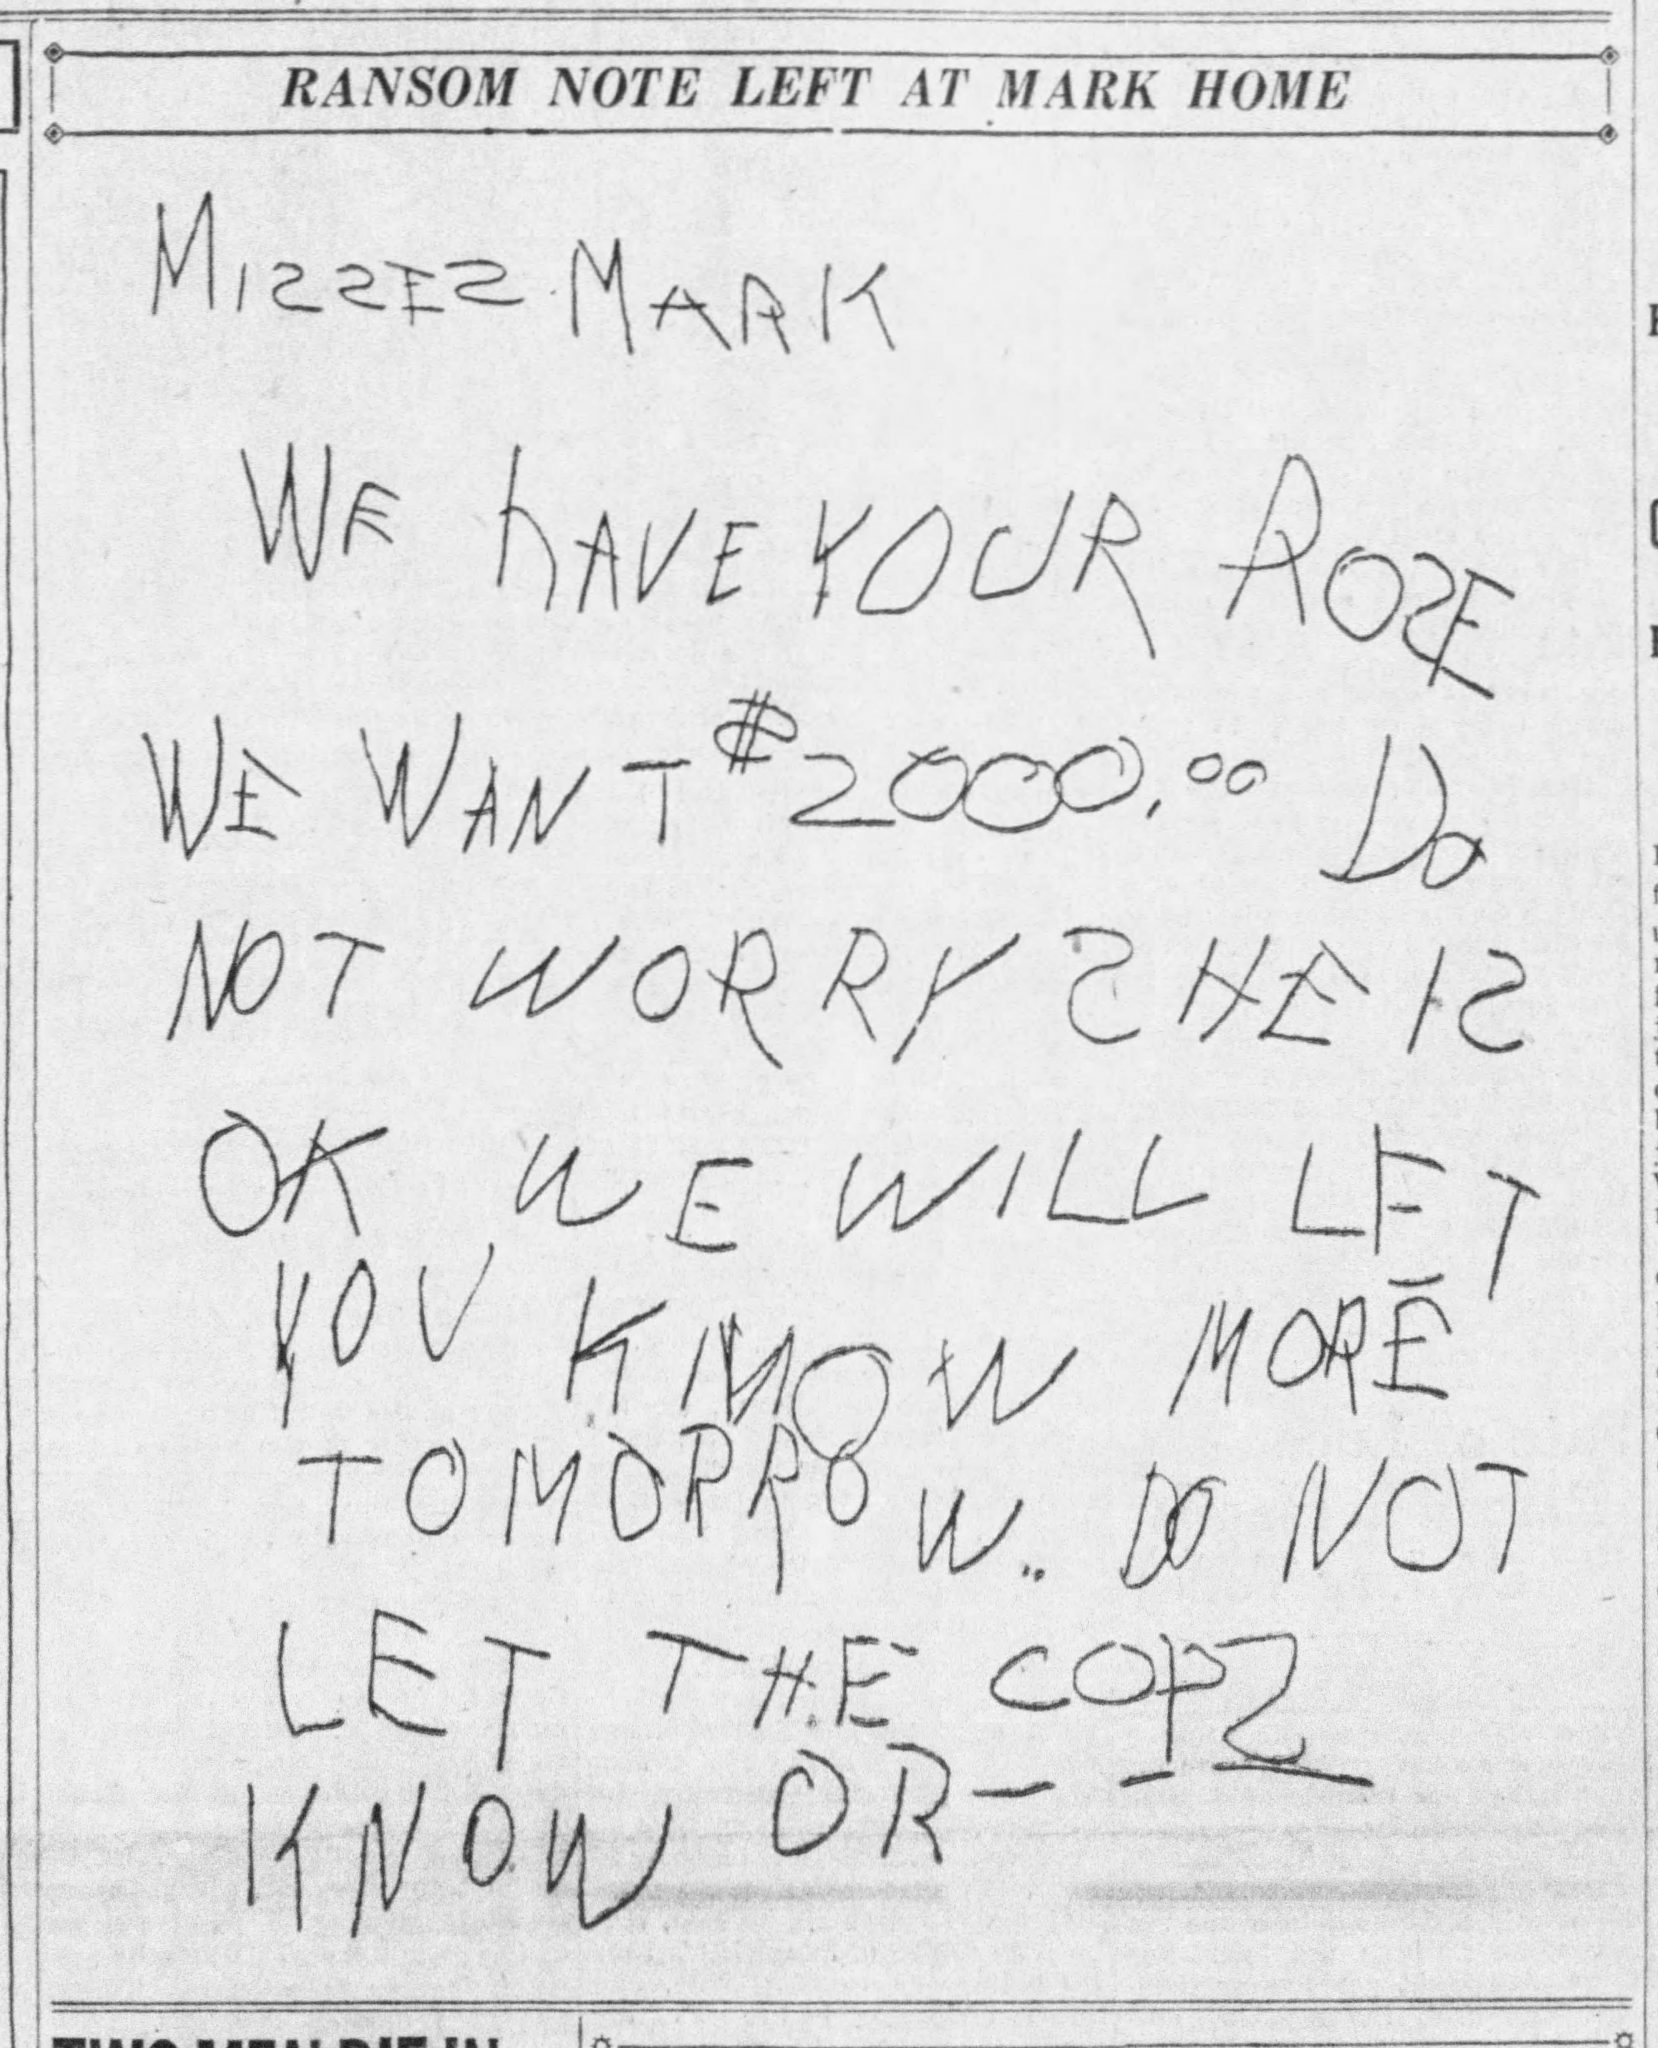 RANSOM NOTE LEFT AT MARK HOME
MISSES MARK
WE hAVE YOUR ROSE
WE WANT $2000.00 DO
NOT WORRY SHE IS
OK WE WILL LET
YOU KNOW MORE
TOMORROW.. DO NOT
LET THE COPS
KNOW OR - -
TWO MEN DIE IN